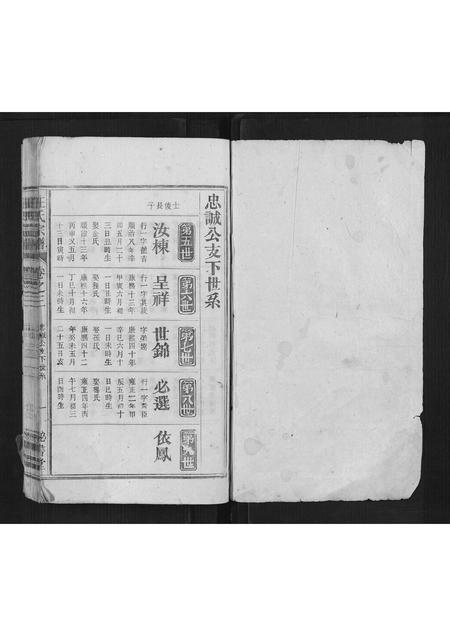 忠誠公支下世系
士俊長子
第五世
汝棟
行一字
順治八年辛
卯五月二十
三日丑時生
娶金氏
順治十三年
丙申五月
十三日寅時
第六世
呈祥
行一字其
康熙十三年
甲寅六月初
一日丑時生
娶孫氏
康熙十六年
丁巳十月初
一日未時生
第七世
世錦
字
康熙四十年
辛巳六月十
一日未時生
娶孫氏
康熙四十二
年癸未五月
二十五日亥
第八世
必選
行一字
雍正二年甲
辰五月初十
日巳時生
娶楊氏
雍正四年丙
午七月初三
日酉時生
第九世
依鳳
汪氏宗譜
卷之三
忠誠公支下世系
一